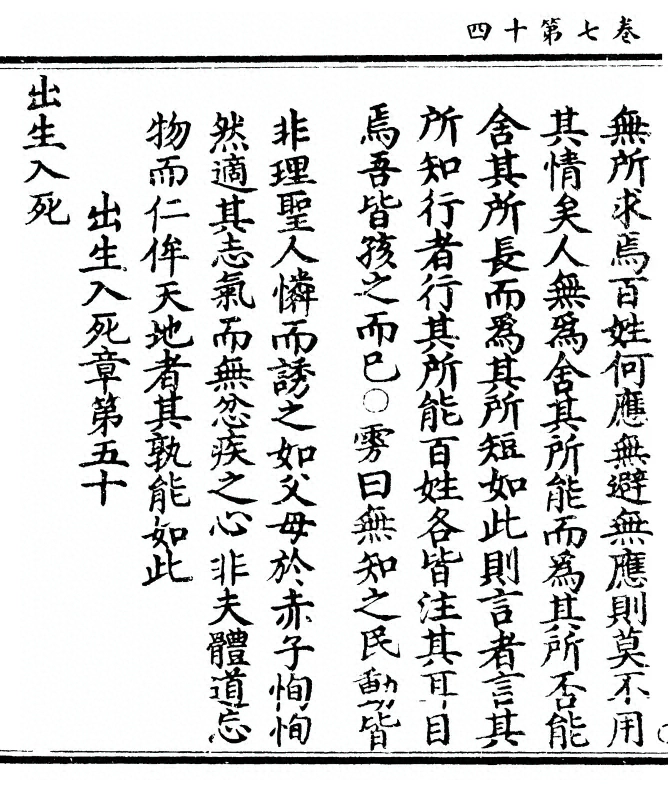 卷七第十四
無所求焉百姓何應無避無應則莫不用
其情矣人無爲舍其所能而爲其所否能
舍其所長而爲其所短如此則言者言其
所知行者行其所能百姓各皆注其耳目
焉吾皆孩之而已○雱曰無知之民動皆
非理聖人憐而誘之如父母於赤子恂恂
然適其志氣而無忿疾之心非夫體道忘
物而仁侔天地者其孰能如此
出生入死章第五十
出生入死